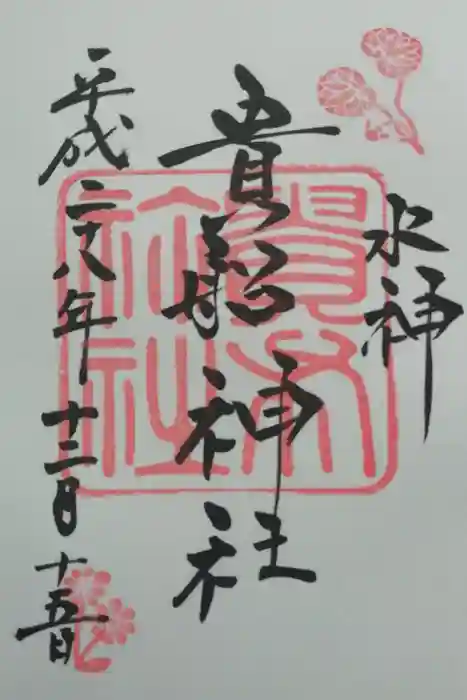 水神
貴船神社
平成二十八年十二月十五日
貴布祢社